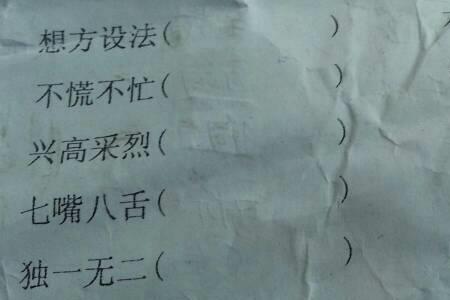 想方设法(          )
不慌不忙(          )
兴高采烈(          )
七嘴八舌(          )
独一无二(          )